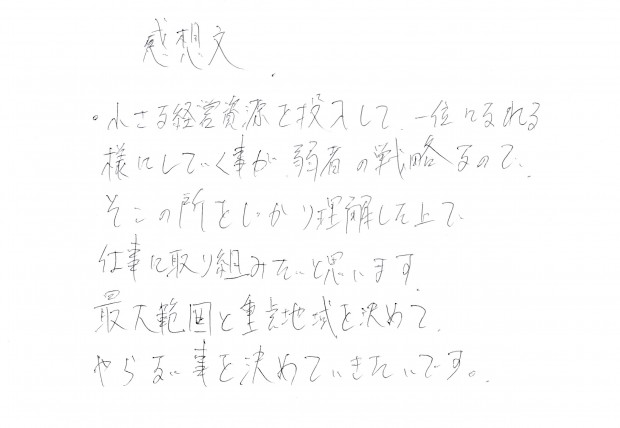 感想文
・小さな経営資源を投入して、一位になれる
様にしていく事が、弱者の戦略なので、
そこの所をしっかり理解した上で
仕事に取り組みたいと思います。
最大範囲と重点地域を決めて、
やらない事を決めていきたいです。